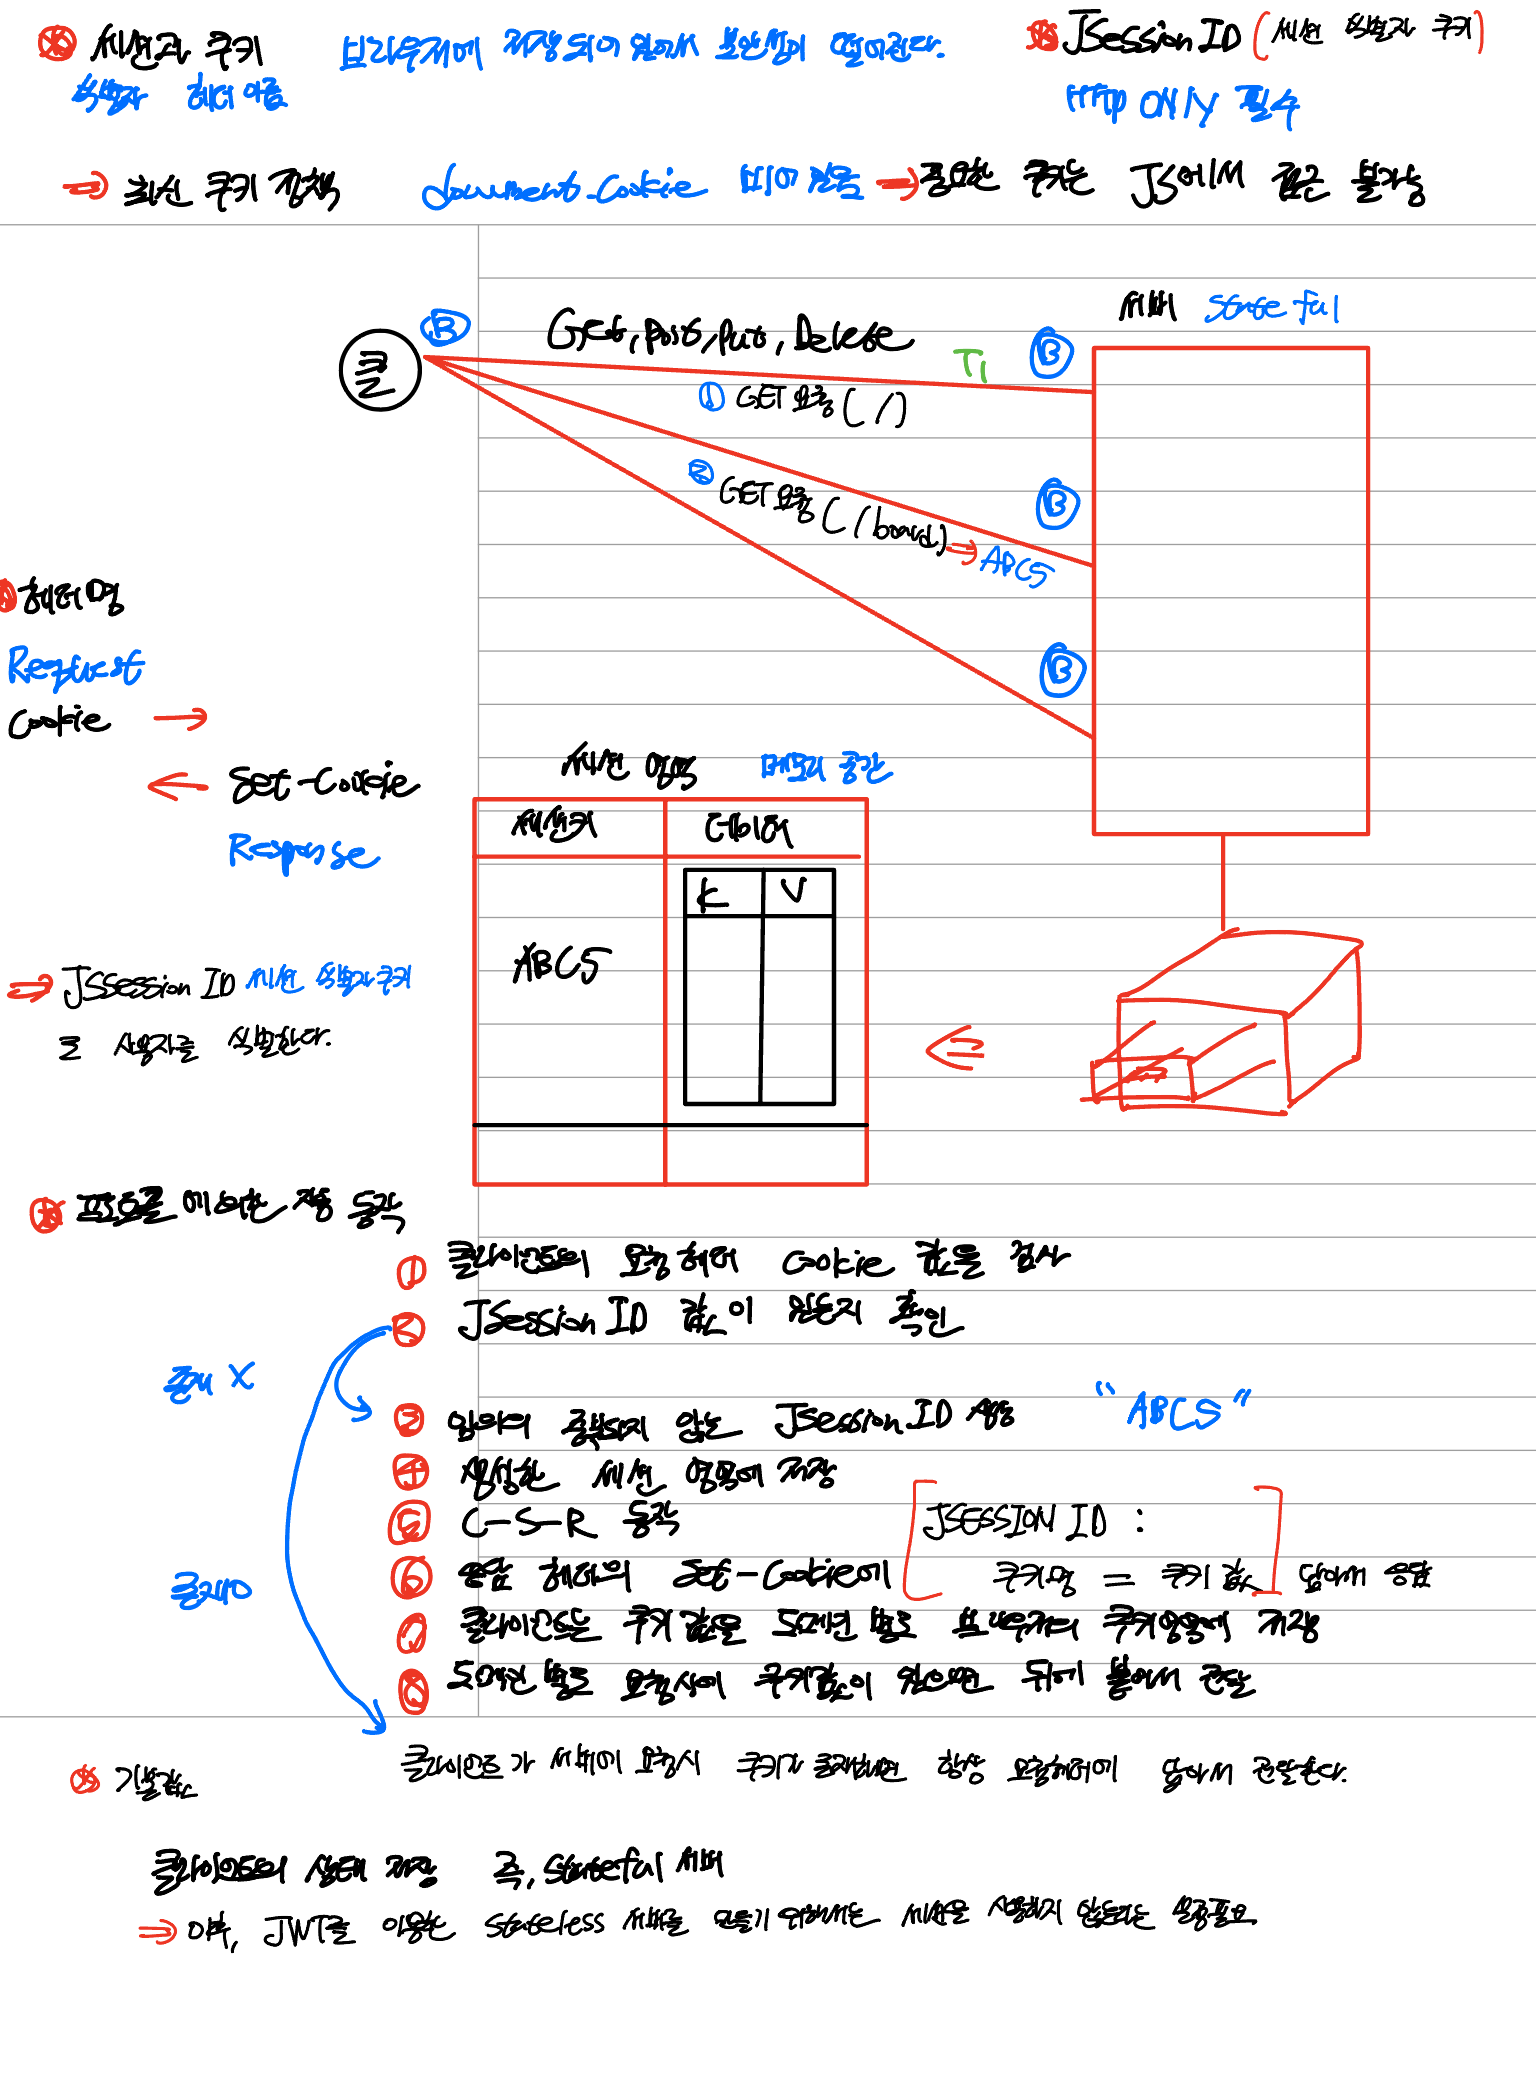 세션과 쿠키 브라우저에 저장되어 있어서 보안성이 떨어진다.
JSession ID (세션 식별자 쿠키)
식별자 헤더이름
HTTP ONLY 필수
⇒ 최신 쿠키 정책 document.cookie 비어있음 ⇒ 중요한 쿠키는 JS에서 접근 불가능
서버 Stateful
클 B Get, Post, Put, Delete T1 B
① GET 요청 ( / )
② GET 요청 ( /board) ⇒ ABC5 B
헤더명
B
Request
Cookie →
← Set-Cookie
Response
세션 영역 메모리 공간
세션키 데이터
K V
ABC5
⇒ JSSession ID 세션 식별자 쿠키
로 사용자를 식별한다.
프로토콜에 의한 자동 동작
① 클라이언트의 요청 헤더 Cookie 값을 검사
② JSession ID 값이 있는지 확인
존재 X
③ 임의의 중복되지 않는 JSession ID 생성 "ABC5"
④ 생성한 세션 영역에 저장
⑤ C-S-R 동작 JSESSION ID :
⑥ 응답 헤더의 Set-Cookie에 쿠키명 = 쿠키 값 담아서 응답
존재 O
⑦ 클라이언트는 쿠키 값을 도메인 별로 브라우저의 쿠키영역에 저장
⑧ 도메인 별로 요청시에 쿠키값이 있으면 뒤에 붙여서 전달
클라이언트가 서버에 요청시 쿠키가 존재하면 항상 요청헤더에 담아서 전달한다.
기본값은
클라이언트의 상태 저장 즉, Stateful 서버
⇒ 이후, JWT를 이용한 Stateless 서버를 만들기 위해서는 세션을 사용하지 않는다는 설정필요